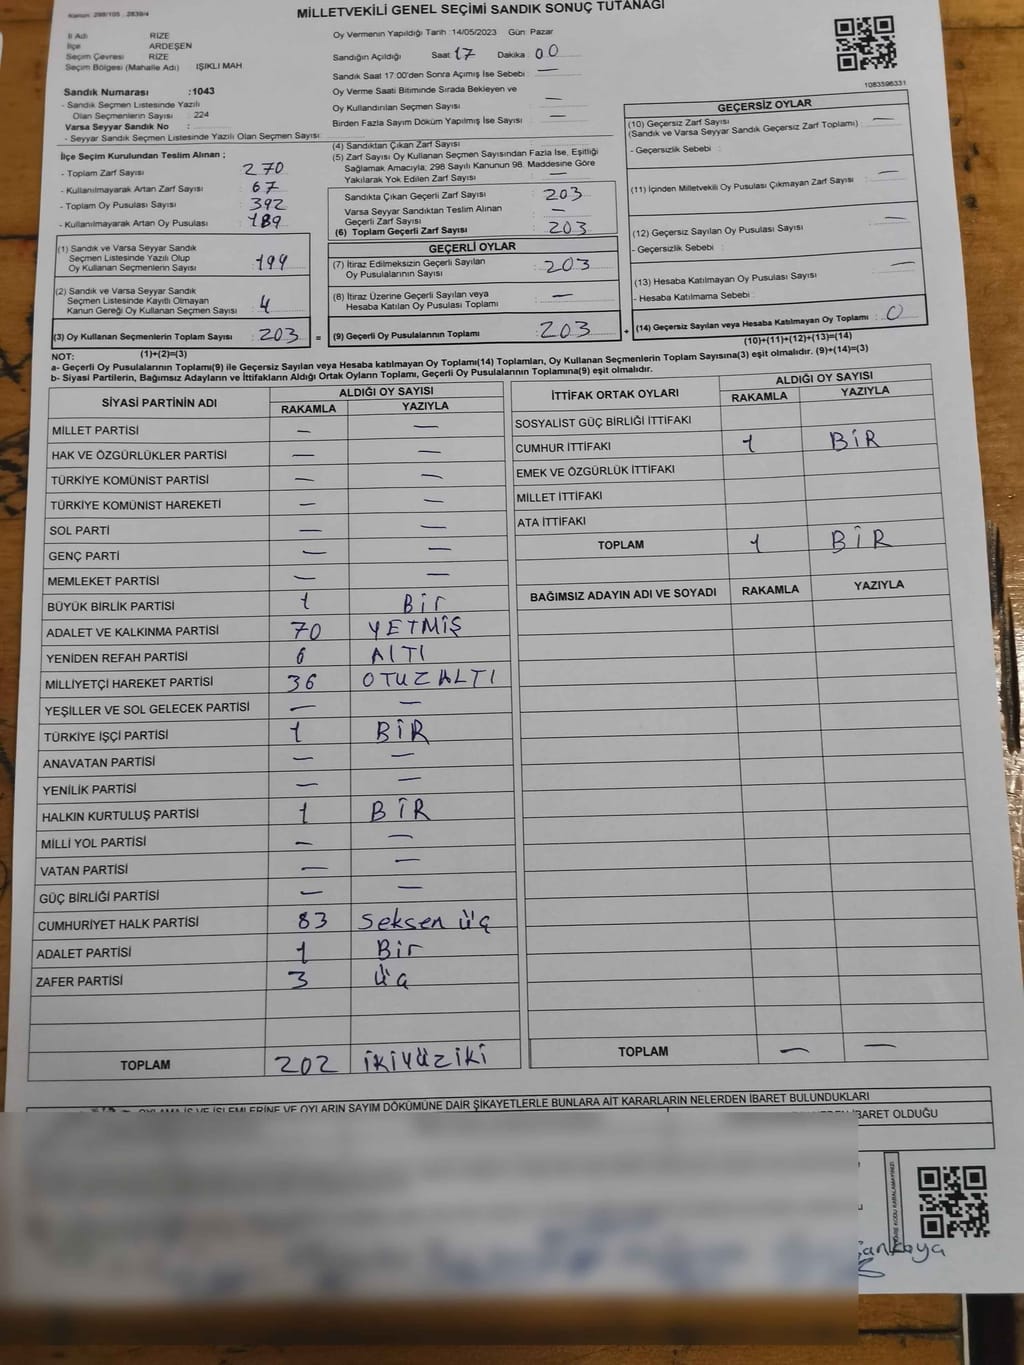 Kanun: 298/105 , 2839/4
MİLLETVEKİLİ GENEL SEÇİMİ SANDIK SONUÇ TUTANAĞI
İl Adı RİZE
İlçe ARDEŞEN
Seçim Çevresi RİZE
Seçim Bölgesi (Mahalle Adı) : IŞIKLI MAH
Sandık Numarası :1043
- Sandık Seçmen Listesinde Yazılı
Olan Seçmenlerin Sayısı : 224
Varsa Seyyar Sandık No :
- Seyyar Sandık Seçmen Listesinde Yazılı Olan Seçmen Sayısı:
İlçe Seçim Kurulundan Teslim Alınan ;
- Toplam Zarf Sayısı 270
- Kullanılmayarak Artan Zarf Sayısı : 67
- Toplam Oy Pusulası Sayısı : 392
- Kullanılmayarak Artan Oy Pusulası : 189
(1) Sandık ve Varsa Seyyar Sandık
Seçmen Listesinde Yazılı Olup
Oy Kullanan Seçmenlerin Sayısı : 199
(2) Sandık ve Varsa Seyyar Sandık
Seçmen Listesinde Kayıtlı Olmayan
Kanun Gereği Oy Kullanan Seçmen Sayısı : 4
(3) Oy Kullanan Seçmenlerin Toplam Sayısı : 203 =
(1)+(2)=(3)
Oy Vermenin Yapıldığı Tarih :14/05/2023 Gün: Pazar
Sandığın Açıldığı Saat : 17 Dakika : 00
Sandık Saat 17:00'den Sonra Açımış İse Sebebi : —
Oy Verme Saati Bitiminde Sırada Bekleyen ve
Oy Kullandırılan Seçmen Sayısı : —
Birden Fazla Sayım Döküm Yapılmış İse Sayısı : —
(4) Sandıktan Çıkan Zarf Sayısı :
(5) Zarf Sayısı Oy Kullanan Seçmen Sayısından Fazla İse, Eşitliği
Sağlamak Amacıyla; 298 Sayılı Kanunun 98. Maddesine Göre
Yakılarak Yok Edilen Zarf Sayısı : —
Sandıkta Çıkan Geçerli Zarf Sayısı : 203
Varsa Seyyar Sandıktan Teslim Alınan
Geçerli Zarf Sayısı : —
(6) Toplam Geçerli Zarf Sayısı : 203
GEÇERLİ OYLAR
(7) İtiraz Edilmeksizin Geçerli Sayılan
Oy Pusulalarının Sayısı : 203
(8) İtiraz Üzerine Geçerli Sayılan veya
Hesaba Katılan Oy Pusulası Toplamı : —
(9) Geçerli Oy Pusulalarının Toplamı : 203 +
1083596331
GEÇERSİZ OYLAR
(10) Geçersiz Zarf Sayısı : —
(Sandık ve Varsa Seyyar Sandık Geçersiz Zarf Toplamı)
- Geçersizlik Sebebi :
(11) İçinden Milletvekili Oy Pusulası Çıkmayan Zarf Sayısı : —
(12) Geçersiz Sayılan Oy Pusulası Sayısı : —
- Geçersizlik Sebebi :
(13) Hesaba Katılmayan Oy Pusulası Sayısı : —
- Hesaba Katılmama Sebebi :
(14) Geçersiz Sayılan veya Hesaba Katılmayan Oy Toplamı : 0
(10)+(11)+(12)+(13)=(14)
NOT:
a- Geçerli Oy Pusulalarının Toplamı(9) ile Geçersiz Sayılan veya Hesaba katılmayan Oy Toplamı(14) Toplamları, Oy Kullanan Seçmenlerin Toplam Sayısına(3) eşit olmalıdır. (9)+(14)=(3)
b- Siyasi Partilerin, Bağımsız Adayların ve İttifakların Aldığı Ortak Oyların Toplamı, Geçerli Oy Pusulalarının Toplamına(9) eşit olmalıdır.
SİYASİ PARTİNİN ADI ALDIĞI OY SAYISI
RAKAMLA YAZIYLA
MİLLET PARTİSİ — —
HAK VE ÖZGÜRLÜKLER PARTİSİ — —
TÜRKİYE KOMÜNİST PARTİSİ — —
TÜRKİYE KOMÜNİST HAREKETİ — —
SOL PARTİ — —
GENÇ PARTİ — —
MEMLEKET PARTİSİ — —
BÜYÜK BİRLİK PARTİSİ 1 Bir
ADALET VE KALKINMA PARTİSİ 70 YETMİŞ
YENİDEN REFAH PARTİSİ 6 ALTI
MİLLİYETÇİ HAREKET PARTİSİ 36 OTUZALTI
YEŞİLLER VE SOL GELECEK PARTİSİ — —
TÜRKİYE İŞÇİ PARTİSİ 1 BİR
ANAVATAN PARTİSİ — —
YENİLİK PARTİSİ — —
HALKIN KURTULUŞ PARTİSİ 1 BİR
MİLLİ YOL PARTİSİ — —
VATAN PARTİSİ — —
GÜÇ BİRLİĞİ PARTİSİ — —
CUMHURİYET HALK PARTİSİ 83 Seksen üç
ADALET PARTİSİ 1 Bir
ZAFER PARTİSİ 3 üç
TOPLAM 202 İKİYÜZİKİ
İTTİFAK ORTAK OYLARI ALDIĞI OY SAYISI
RAKAMLA YAZIYLA
SOSYALİST GÜÇ BİRLİĞİ İTTİFAKI
CUMHUR İTTİFAKI 1 BİR
EMEK VE ÖZGÜRLÜK İTTİFAKI
MİLLET İTTİFAKI
ATA İTTİFAKI
TOPLAM 1 BİR
BAĞIMSIZ ADAYIN ADI VE SOYADI RAKAMLA YAZIYLA
TOPLAM — —
OYLAMA İŞ VE İŞLEMLERİNE VE OYLARIN SAYIM DÖKÜMÜNE DAİR ŞİKAYETLERLE BUNLARA AİT KARARLARIN NELERDEN İBARET BULUNDUKLARI
İBARET OLDUĞU